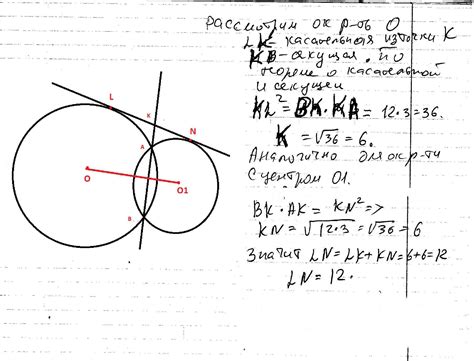 L
K
N
A
O
O1
B
Рассмотрим окр-ть O
LK касательная из точки K
KB-секущая. по
теореме о касательной
и секущей
KL² = BK·KA = 12·3=36.
K = √36 = 6.
Аналогично для окр-ти
с центром O1.
BK·AK = KN² =>
KN = √12·3 = √36 = 6
Значит LN = LK + KN = 6+6=12
LN = 12.